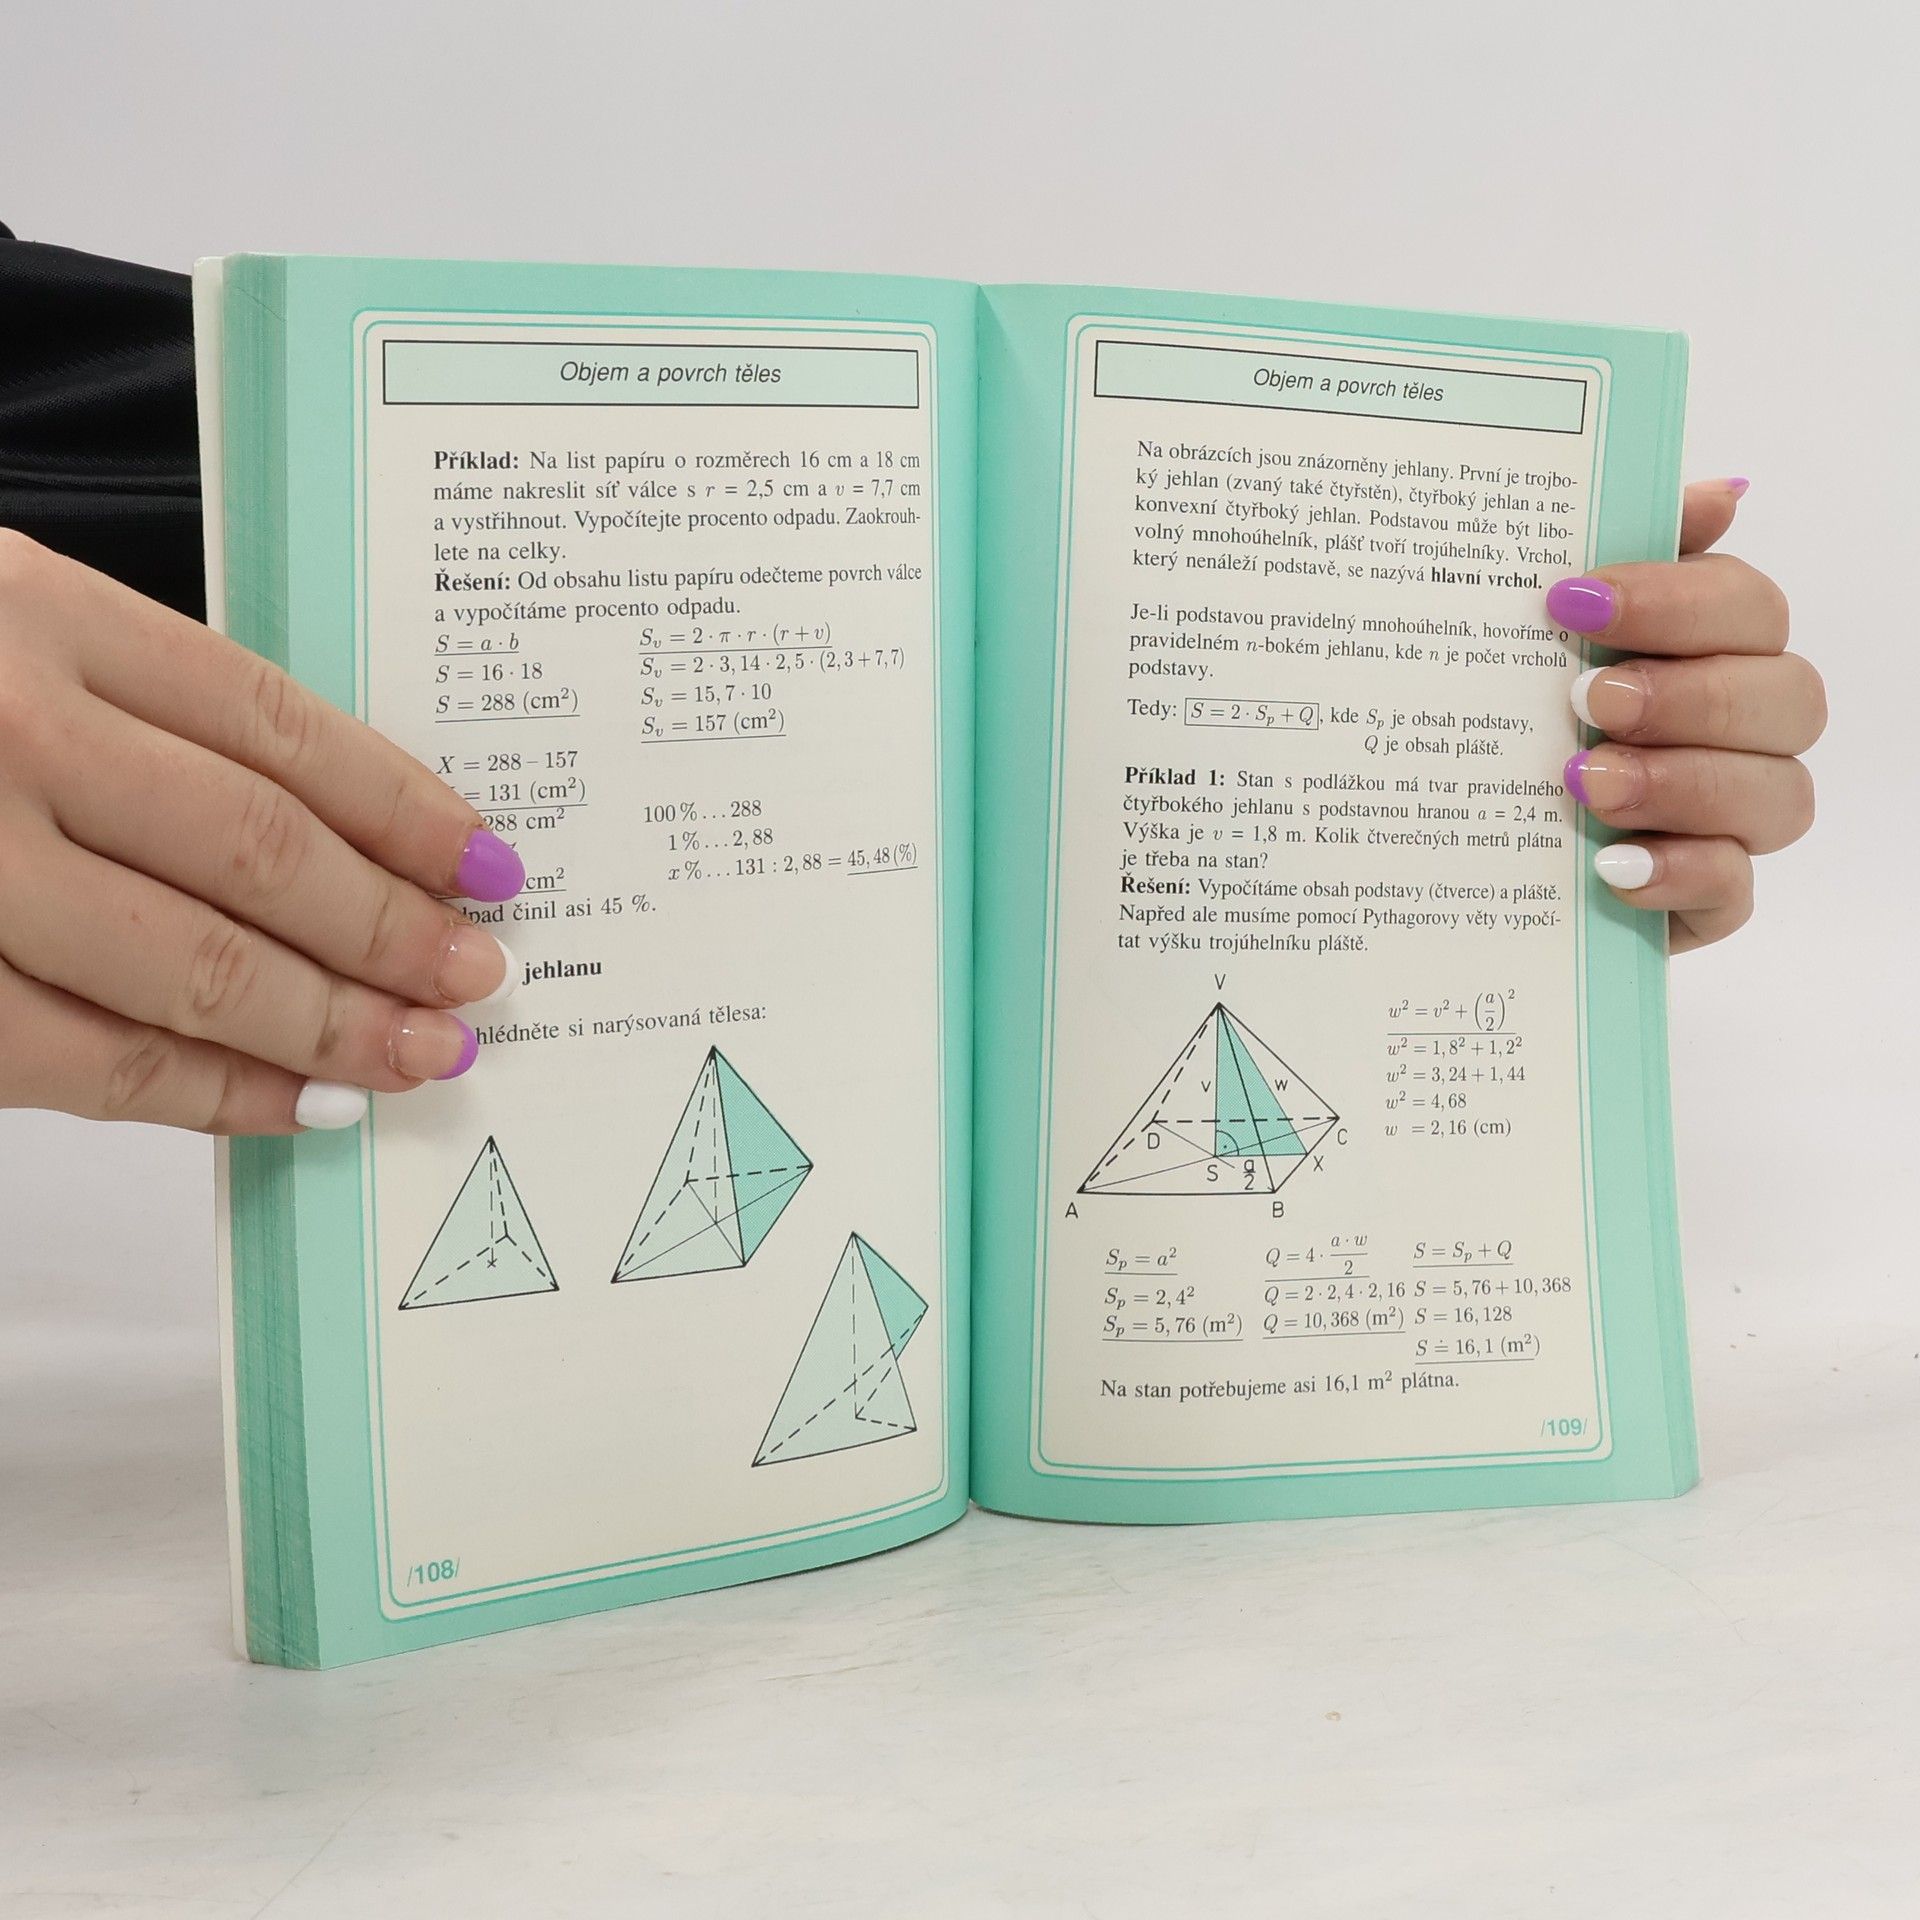 Objem a povrch těles
Příklad: Na list papíru o rozměrech 16 cm a 18 cm
máme nakreslit síť válce s r = 2,5 cm a v = 7,7 cm
a vystřihnout. Vypočítejte procento odpadu. Zaokrouh-
lete na celky.
Řešení: Od obsahu listu papíru odečteme povrch válce
a vypočítáme procento odpadu.
S = a · b
S = 16 · 18
S = 288 (cm²)
Sᵥ = 2 · π · r · (r + v)
Sᵥ = 2 · 3, 14 · 2, 5 · (2, 3 + 7, 7)
Sᵥ = 15, 7 · 10
Sᵥ = 157 (cm²)
X = 288 – 157
= 131 (cm²)
288 cm²
cm²
100 % . . . 288
1 % . . . 2, 88
x % . . . 131 : 2, 88 = 45, 48 (%)
pad činil asi 45 %.
jehlanu
hlédněte si narýsovaná tělesa:
/108/
Objem a povrch těles
Na obrázcích jsou znázorněny jehlany. První je trojbo-
ký jehlan (zvaný také čtyřstěn), čtyřboký jehlan a ne-
konvexní čtyřboký jehlan. Podstavou může být libo-
volný mnohoúhelník, plášť tvoří trojúhelníky. Vrchol,
který nenáleží podstavě, se nazývá hlavní vrchol.
Je-li podstavou pravidelný mnohoúhelník, hovoříme o
pravidelném n-bokém jehlanu, kde n je počet vrcholů
podstavy.
Tedy: S = 2 · Sₚ + Q, kde Sₚ je obsah podstavy,
Q je obsah pláště.
Příklad 1: Stan s podlážkou má tvar pravidelného
čtyřbokého jehlanu s podstavnou hranou a = 2,4 m.
Výška je v = 1,8 m. Kolik čtverečných metrů plátna
je třeba na stan?
Řešení: Vypočítáme obsah podstavy (čtverce) a pláště.
Napřed ale musíme pomocí Pythagorovy věty vypočí-
tat výšku trojúhelníku pláště.
V
v w
D C
S a/2 X
A B
w² = v² + (a/2)²
w² = 1, 8² + 1, 2²
w² = 3, 24 + 1, 44
w² = 4, 68
w = 2, 16 (cm)
Sₚ = a²
Sₚ = 2, 4²
Sₚ = 5, 76 (m²)
Q = 4 · a · w / 2
Q = 2 · 2, 4 · 2, 16
Q = 10, 368 (m²)
S = Sₚ + Q
S = 5, 76 + 10, 368
S = 16, 128
S ≐ 16, 1 (m²)
Na stan potřebujeme asi 16,1 m² plátna.
/109/